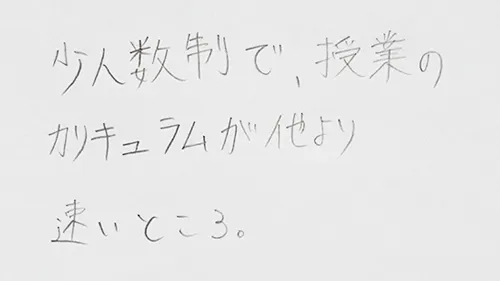 少人数制で、授業の
カリキュラムが他より
速いところ。